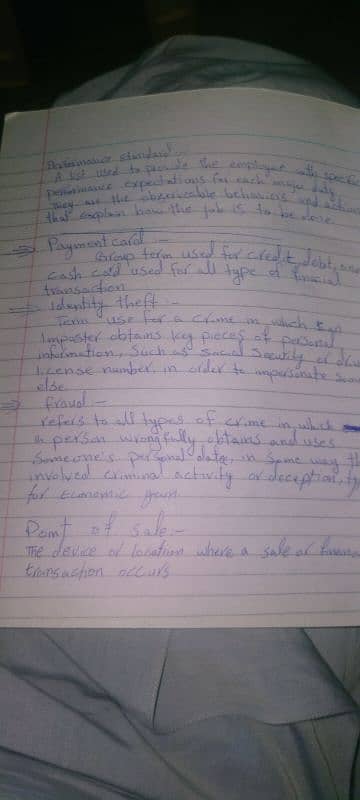 Performance standard :-
A list used to provide the employee with specific
performance expectations for each major duty.
They are the observable behaviors and actions
that explain how the job is to be done.
⇒ Payment card :-
Group term used for credit, debt, and
cash card used for all type of financial
transaction
⇒ Identity theft :-
Term use for a crime in which an
Imposter obtains key pieces of personal
information, Such as Social Security or
license number, in order to impersonate
else.
⇒ fraud :-
refers to all types of crime in which
a person wrongfully obtains and uses
Someone's personal data, in some way
involved criminal activity or deception,
for Economic gain.
Point of sale :-
The device or location where a sale or
transaction occurs